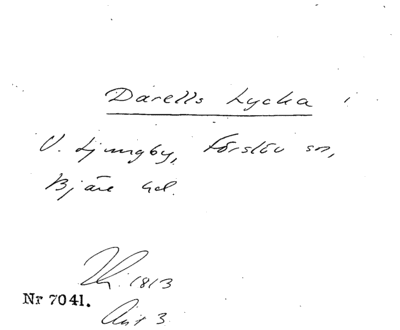 Darells Lycka i
V. Ljungby, Förslöv sn,
Bjäre hd.
1813
Nr 7041.
3.